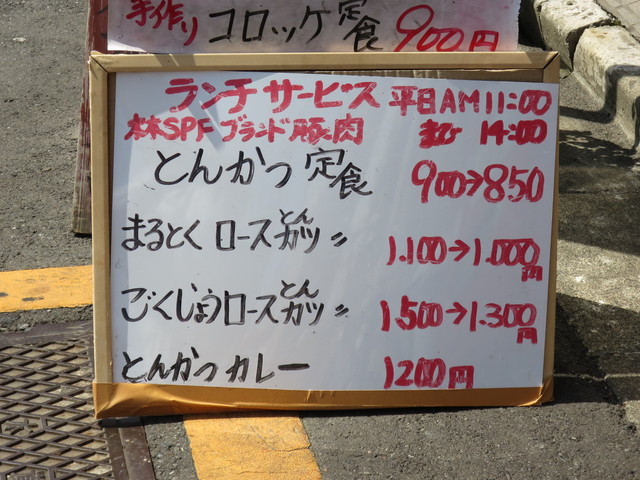 手作り コロッケ定食 900円
ランチサービス 平日AM11:00
林SPFブランド豚肉 まで 14:00
とんかつ定食 900→850
まるとくロースとんカツ〃 1.100→1.000円
ごくじょうロースとんカツ〃 1.500→1.300円
とんかつカレー 1200円